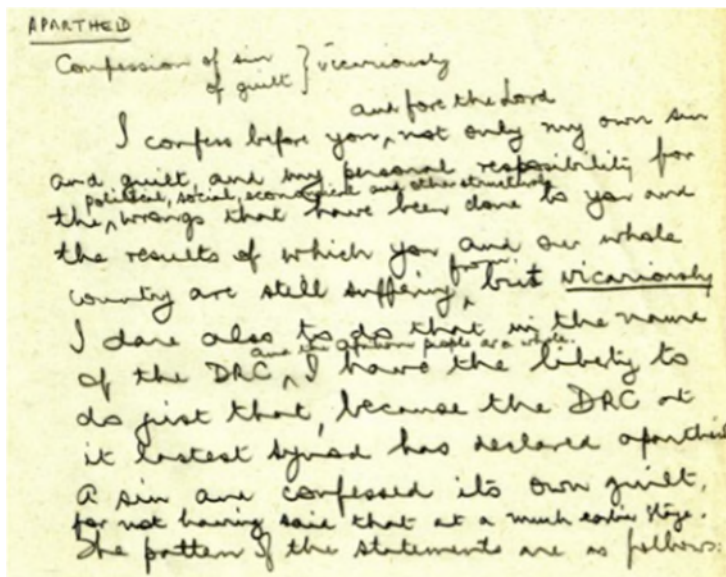 APARTHEID
Confession of sin } vicariously
of guilt
and fore the Lord
I confess before you, not only my own sin
and guilt, and my personal resposibility for
political, social, economical and other structural
the wrongs that have been done to you and
the results of which you and our whole
from
country are still suffering, but vicariously
I dare also to do that in the name
and the afrikaan people as a whole.
of the DRC, I have the liberty to
do just that, because the DRC at
it lastest synod has declared apartheid
a sin and confessed its own guilt,
for not having said that at a much earlier stage.
The pattern of the statements are as follows: